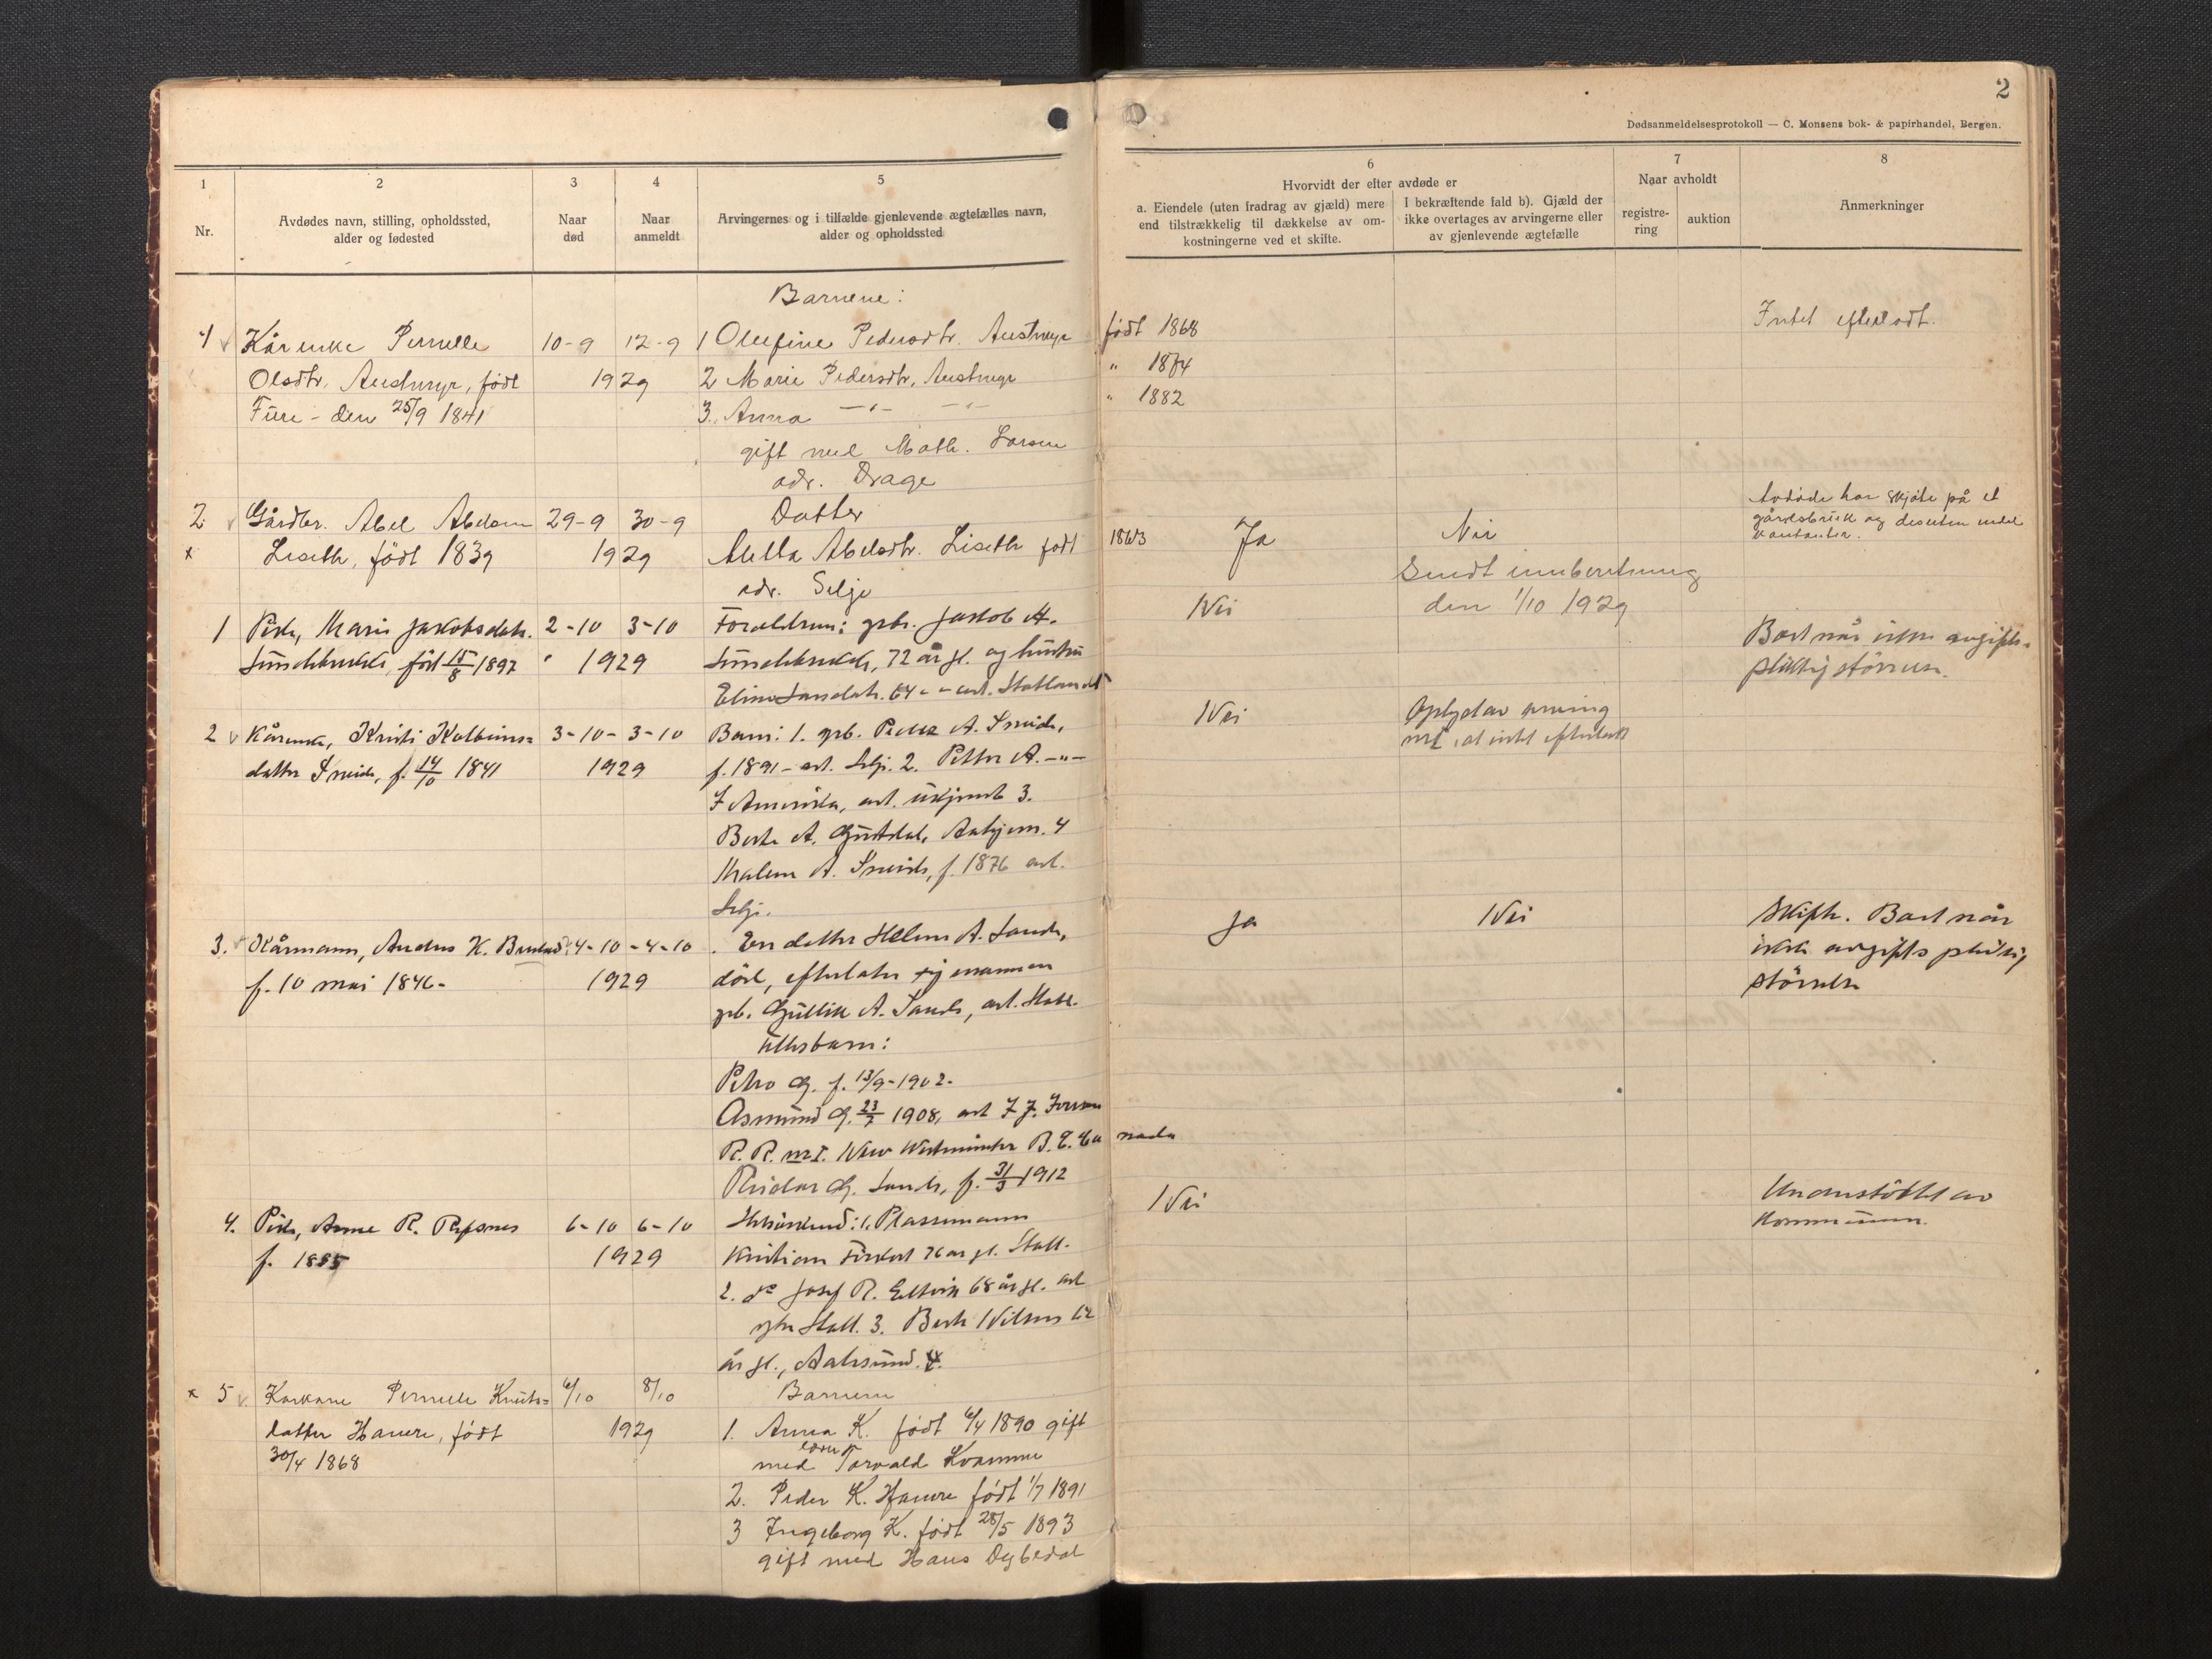 2
Dødsanmeldelsesprotokoll — C. Monsens bok- & papirhandel, Bergen.
1
Nr.
2
Avdødes navn, stilling, opholdssted,
alder og fødested
3
Naar
død
4
Naar
anmeldt
5
Arvingernes og i tilfælde gjenlevende ægtefælles navn,
alder og opholdssted
6
Hvorvidt der efter avdøde er
a. Eiendele (uten fradrag av gjæld) mere
end tilstrækkelig til dækkelse av om-
kostningerne ved et skifte.
I bekræftende fald b). Gjæld der
ikke overtages av arvingerne eller
av gjenlevende ægtefælle
7
Naar avholdt
registre-
ring
auktion
8
Anmerkninger
Barnene:
1 Kårenke Pernelle 10-9 12-9 1 Olefine Pedersdtr. Austmyr født 1868 Intet efterladt.
Olsdtr. Austmyr, født 1929 2 Marie Pedersdtr. Austmyr " 1874
Fure - den 25/9 1841 3. Anna -"- -"- " 1882
gift med Math. Larsen
adr. Drage
2 Gårdbr. Abel Abelsen 29-9 30-9 Datter Ja Nei Avdøde har skjøte på et
gårdsbruk og desuten endel
kontanter.
x Liseth, født 1839 1929 Abelsdtr. Liseth født 1863
adr. Selje
Sendt innberetning
den 1/10 1929
1 Pike, Marie Jakobsdatr. 2-10 3-10 Foreldrene: grbr. Jakob A. Nei
født 15/8 1897 " 1929 72 år gl. og hustru
Boet når ikke avgifts-
pliktig størrelse.
64 - " - adr. Statlandet
2 Kårenke, Kristi Kolbeins= 3-10- 3-10 Barn: 1. grb. A. Nei
datter f. 14/10 1841 1929 f. 1891 - adr. Selje. 2. Petter A. -"-
I Amerika, adr. ukjent 3.
Berte A. 4
Malene A. f. 1876 adr.
Selje.
3. Kårmann, Andreas K. 4-10-4-10 . En datter Helene A. Sande, Ja Nei Skifte. Boet når
f. 10 mai 1846- 1929 død, efterlater sig mannen ikke avgifts pliktig
størrelse
grb. Gullik A. Sande, adr. Statl.
Peter G. f. 13/9-1902-
Asmund G. 23/7 1908, adr
R. R. nr 1. New Westminster B. C. Canada
Reidar G. Sande, f. 31/3 1912
4. Pike, Anne R. 6-10 6-10 Nei Understøttet av
kommunen.
f. 1885 1929 Kristian 76 år gl. Statl.
2. do Josef R. 68 år gl. adr
Statl. 3. Berte Nilsen 62
år gl., Aalesund. 4.
x 5 Karkone Pernelle Knuts= 6/10 8/10 Barnene
datter Hamre, født 1929 1. Anna K. født 6/4 1890 gift
30/4 1868 med Torvald Kvamme
2. Peder K. Hamre født 1/7 1891
3 Ingeborg K. født 28/5 1893
gift med Hans Dybedal